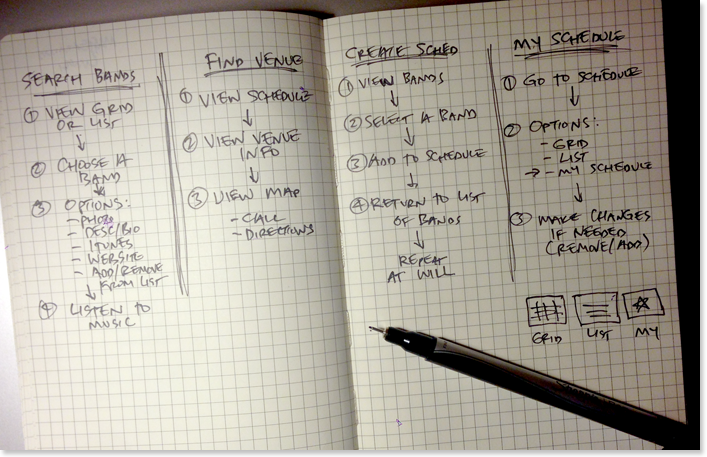 SEARCH BANDS
① VIEW GRID
OR LIST
② CHOOSE A
BAND
③ OPTIONS:
- PHOTO
- DESC/BIO
- ITUNES
- WEBSITE
- ADD/REMOVE
FROM LIST
④ LISTEN TO
MUSIC
FIND VENUE
① VIEW SCHEDULE
② VIEW VENUE
INFO
③ VIEW MAP
- CALL
- DIRECTIONS
CREATE SCHED
① VIEW BANDS
② SELECT A BAND
③ ADD TO SCHEDULE
④ RETURN TO LIST
OF BANDS
REPEAT
AT WILL
MY SCHEDULE
① GO TO SCHEDULE
② OPTIONS:
- GRID
- LIST
→ - MY SCHEDULE
③ MAKE CHANGES
IF NEEDED
(REMOVE/ADD)
GRID LIST MY